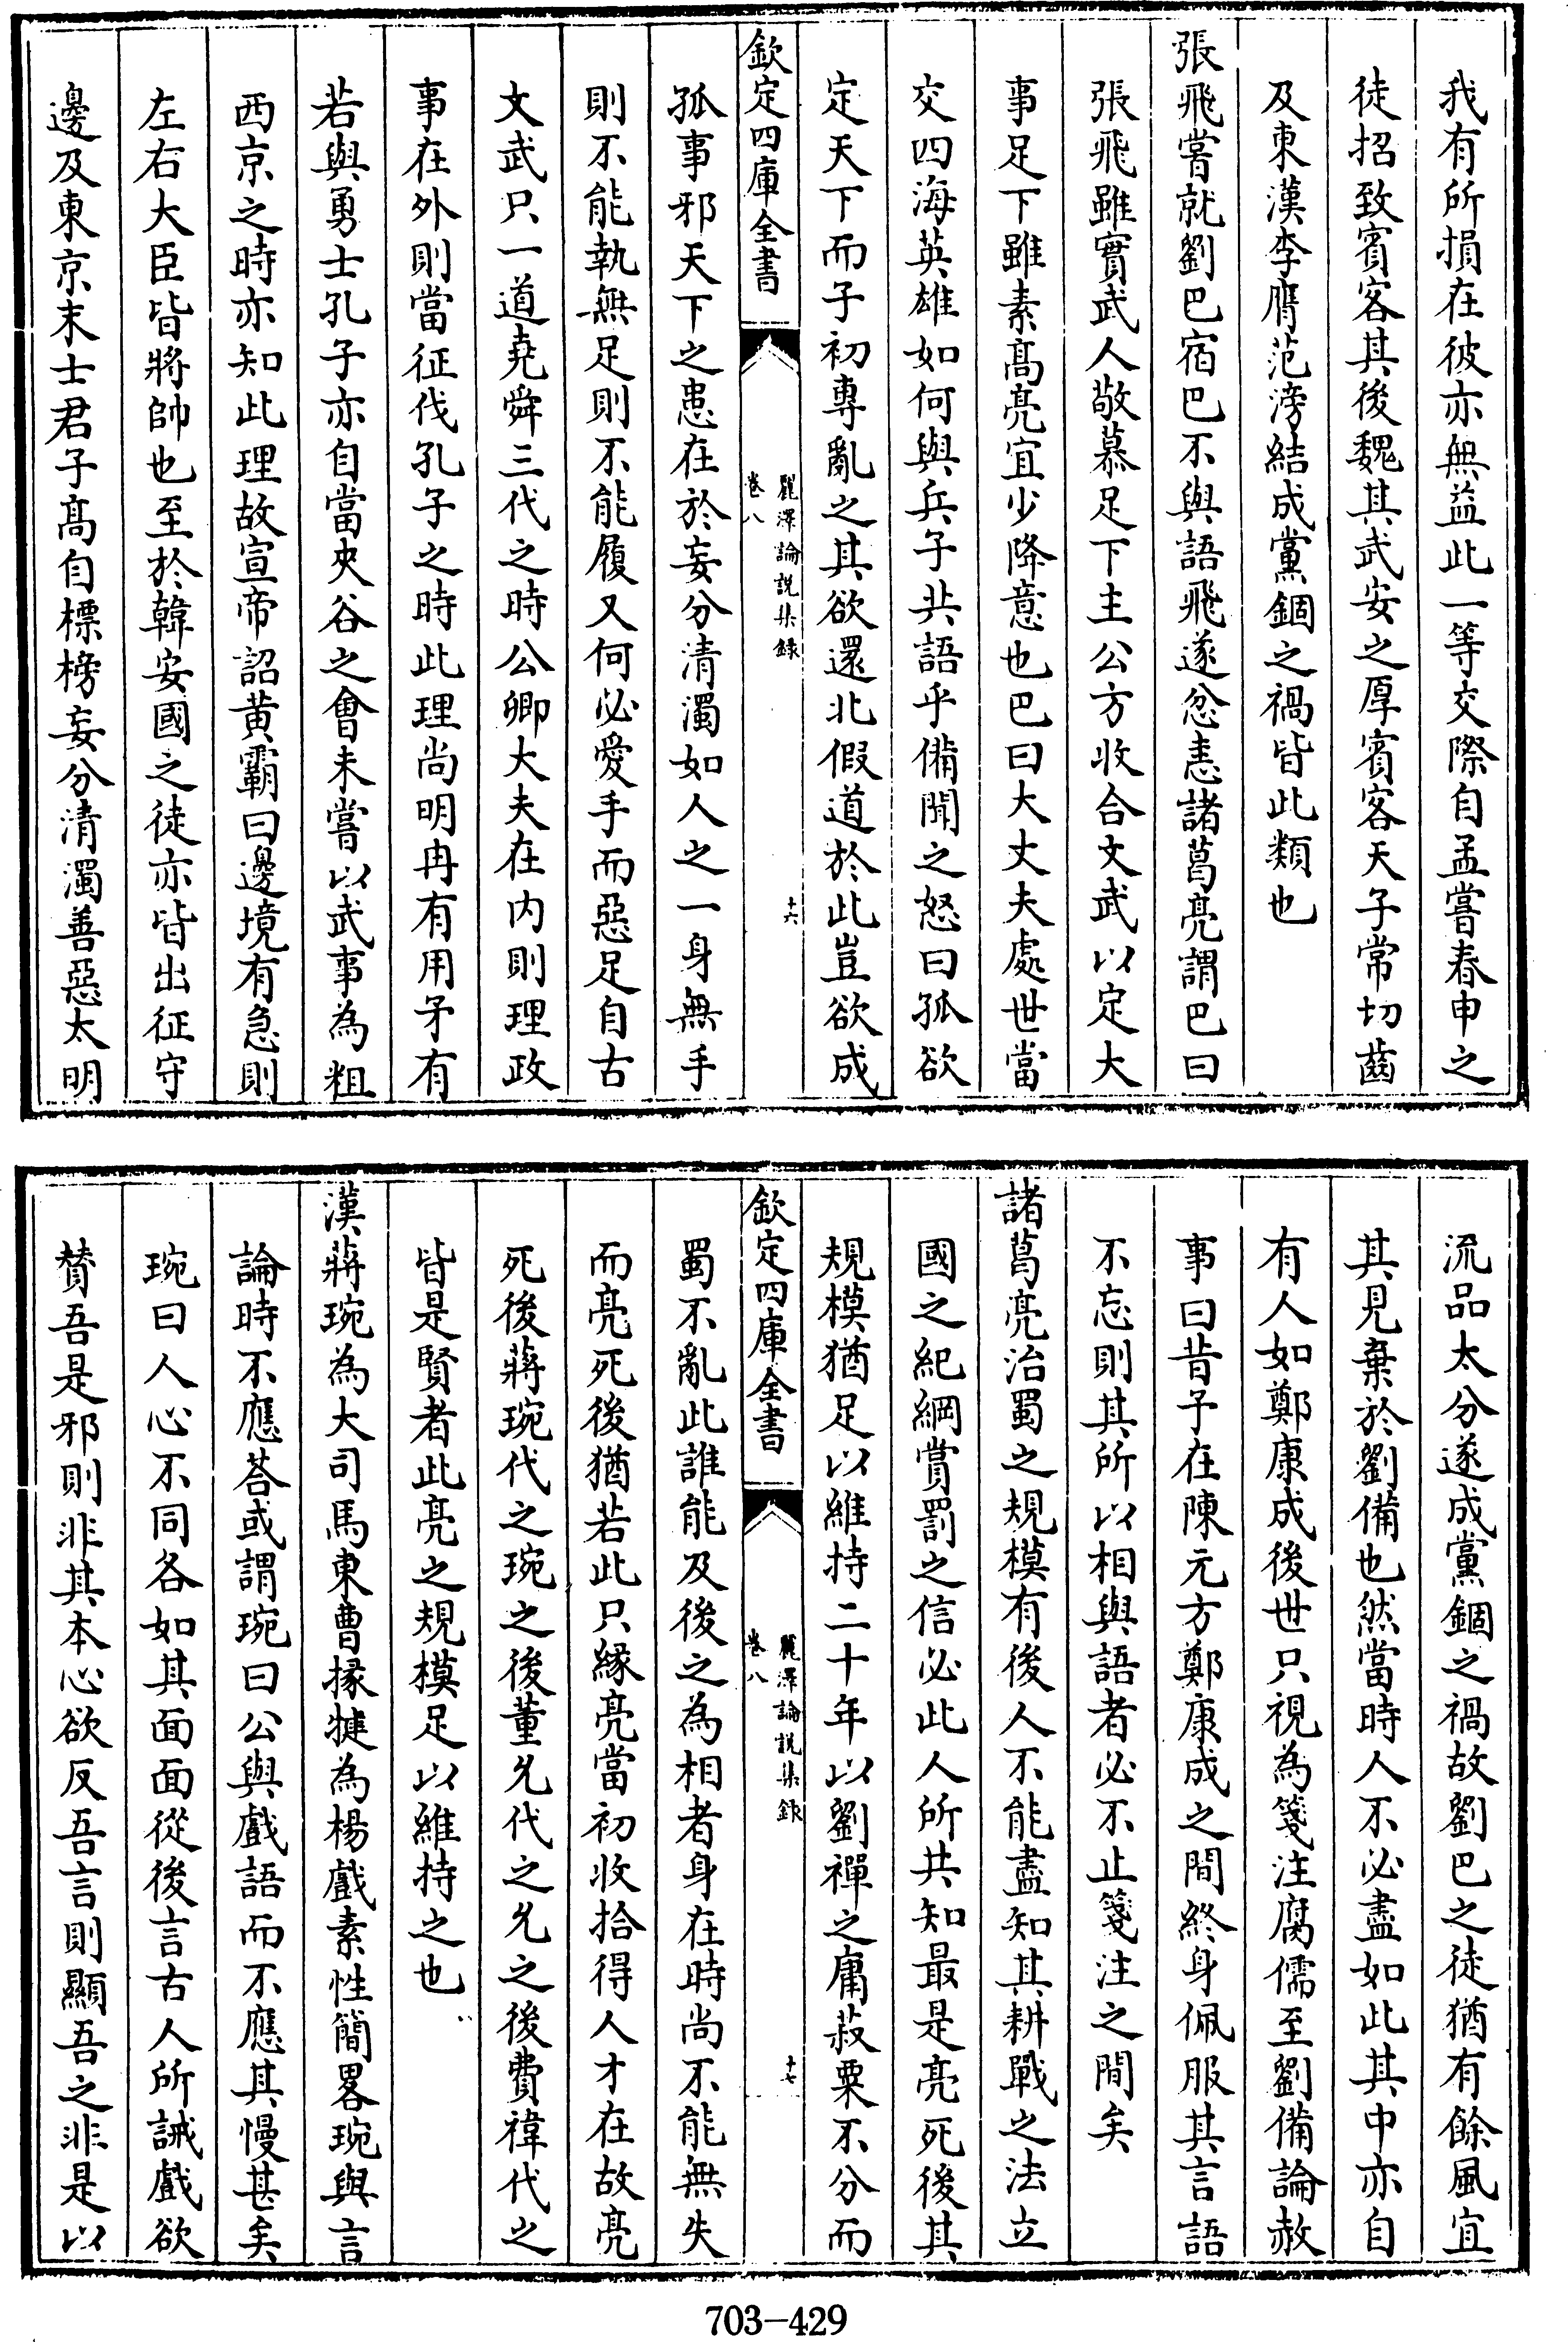 我有所損在彼亦無益此一等交際自孟嘗春申之
徒招致賓客其後魏其武安之厚賓客天子常切齒
及東漢李膺范滂結成黨錮之禍皆此類也
張飛嘗就劉巴宿巴不與語飛遂忿恚諸葛亮謂巴曰
張飛雖實武人敬慕足下主公方收合文武以定大
事足下雖素髙亮宜少降意也巴曰大丈夫處世當
交四海英雄如何與兵子共語乎備聞之怒曰孤欲
定天下而子初專亂之其欲還北假道於此豈欲成
欽定四庫全書
麗澤論説集録
卷八
十六
孤事邪天下之患在於妄分清濁如人之一身無手
則不能執無足則不能履又何必愛手而惡足自古
文武只一道堯舜三代之時公卿大夫在内則理政
事在外則當征伐孔子之時此理尚明冉有用矛有
若與勇士孔子亦自當夾谷之會未嘗以武事為粗
西京之時亦知此理故宣帝詔黄霸曰邊境有急則
左右大臣皆將帥也至於韓安國之徒亦皆出征守
邊及東京末士君子髙自標榜妄分清濁善惡太明
流品太分遂成黨錮之禍故劉巴之徒猶有餘風宜
其見棄於劉備也然當時人不必盡如此其中亦自
有人如鄭康成後世只視為箋注腐儒至劉備論赦
事曰昔予在陳元方鄭康成之間終身佩服其言語
不忘則其所以相與語者必不止箋注之間矣
諸葛亮治蜀之規模有後人不能盡知其耕戰之法立
國之紀綱賞罰之信必此人所共知最是亮死後其
規模猶足以維持二十年以劉禪之庸菽粟不分而
欽定四庫全書
麗澤論説集録
卷八
十七
蜀不亂此誰能及後之為相者身在時尚不能無失
而亮死後猶若此只縁亮當初收拾得人才在故亮
死後蔣琬代之琬之後董允代之允之後費禕代之
皆是賢者此亮之規模足以維持之也
漢蔣琬為大司馬東曹掾犍為楊戲素性簡畧琬與言
論時不應荅或謂琬曰公與戲語而不應其慢甚矣
琬曰人心不同各如其面面從後言古人所誡戲欲
賛吾是邪則非其本心欲反吾言則顯吾之非是以
703-429